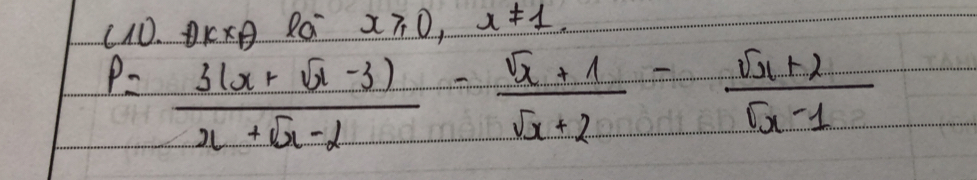 C10. ĐKXĐ là x ≥ 0, x ≠ 1.
P = \frac{3(x + \sqrt{x} - 3)}{x + \sqrt{x} - 2} - \frac{\sqrt{x} + 1}{\sqrt{x} + 2} - \frac{\sqrt{x} + 2}{\sqrt{x} - 1}